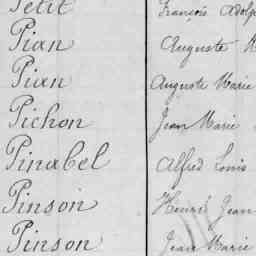 Petit François Adolp
Pian Auguste
Pian Auguste Marie
Pichon Jean Marie
Pinabel Alfred Louis
Pinson Henri Jean
Pinson Jean Marie